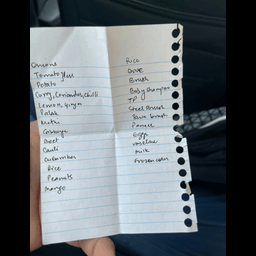 Onions
Tomatoes
Potato
Curry, Coriander, Chilli
Lemon, Ginger
Palak
Methi
Cabbage
Beet
Cauli
Cucumber
Rice
Peanuts
Mango
Rice
Dove
Brush
Baby shampoo
TP
Steel Brush
Paneer
Eggs
Vaseline
Milk
Frozen corn